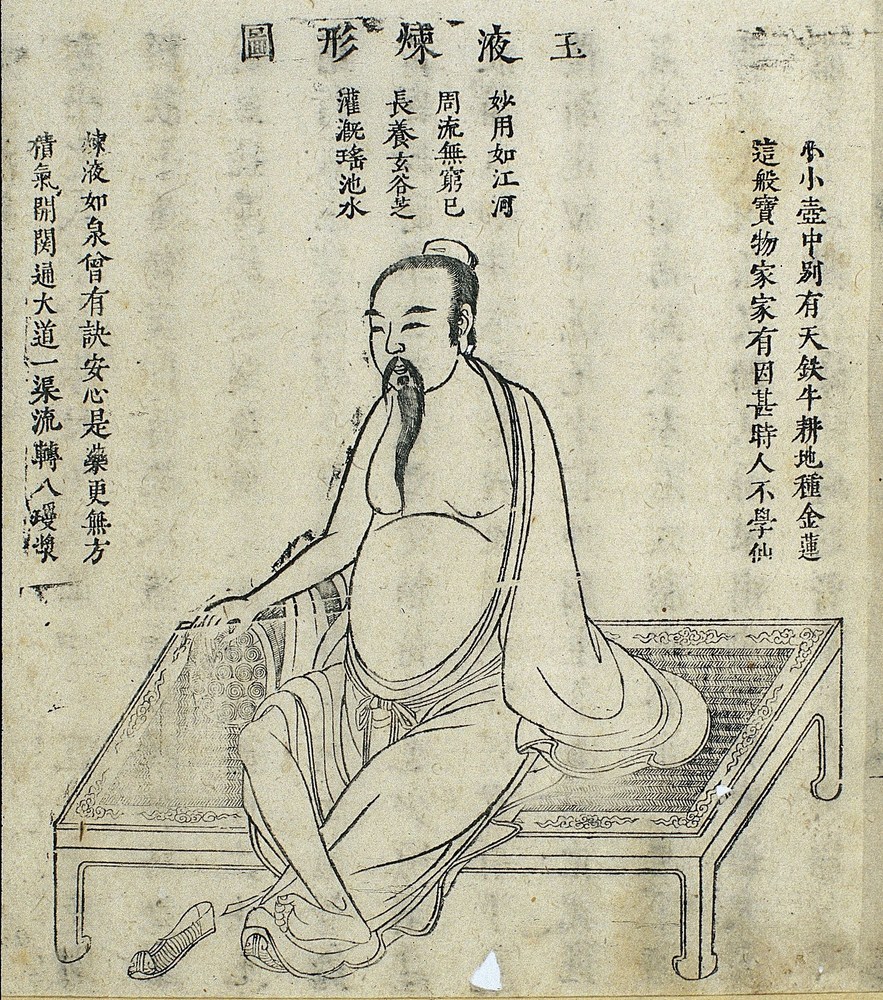 玉液煉形圖
小小壺中別有天鉄牛耕地種金蓮
這般寶物家家有因甚時人不學仙
妙用如江河
周流無窮已
長養玄谷芝
灌溉瑤池水
煉液如泉曾有訣安心是藥更無方
積氣開関通大道一渠流轉八瓊漿